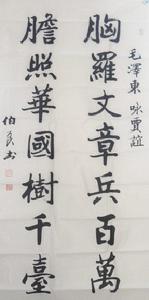 毛澤東 咏賈誼
胸羅文章兵百萬
膽照華國樹千臺
伯良书